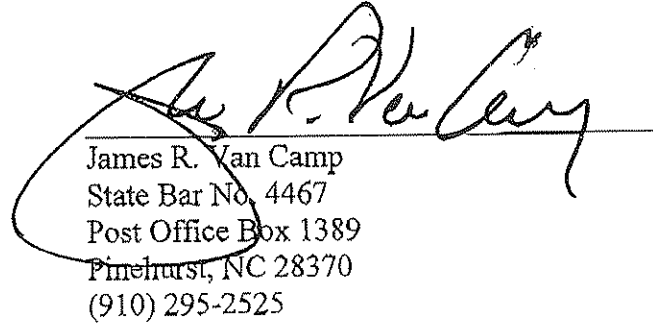 James R. Van Camp
James R. Van Camp
State Bar No. 4467
Post Office Box 1389
Pinehurst, NC 28370
(910) 295-2525